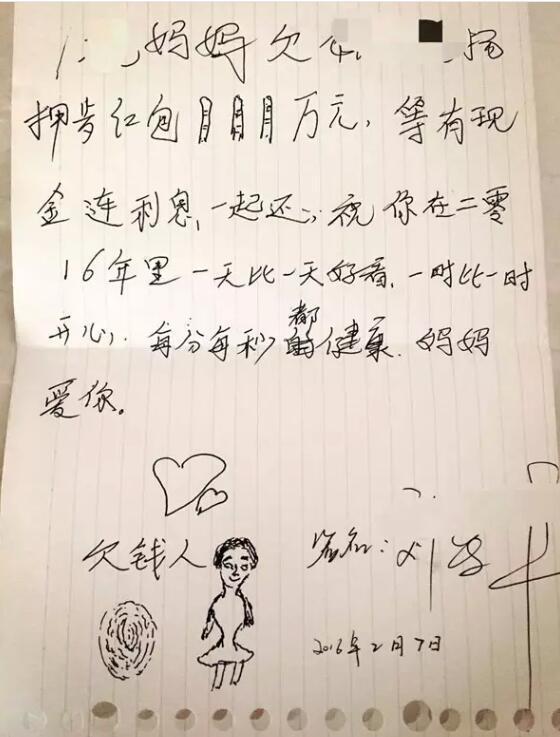 妈妈欠
押岁红包万元，等有现
金连利息，一起还；祝你在二零
16年里一天比一天好看，一时比一时
开心，每分每秒都健康．妈妈
爱你。
欠钱人
签名：刘
2016年2月7日